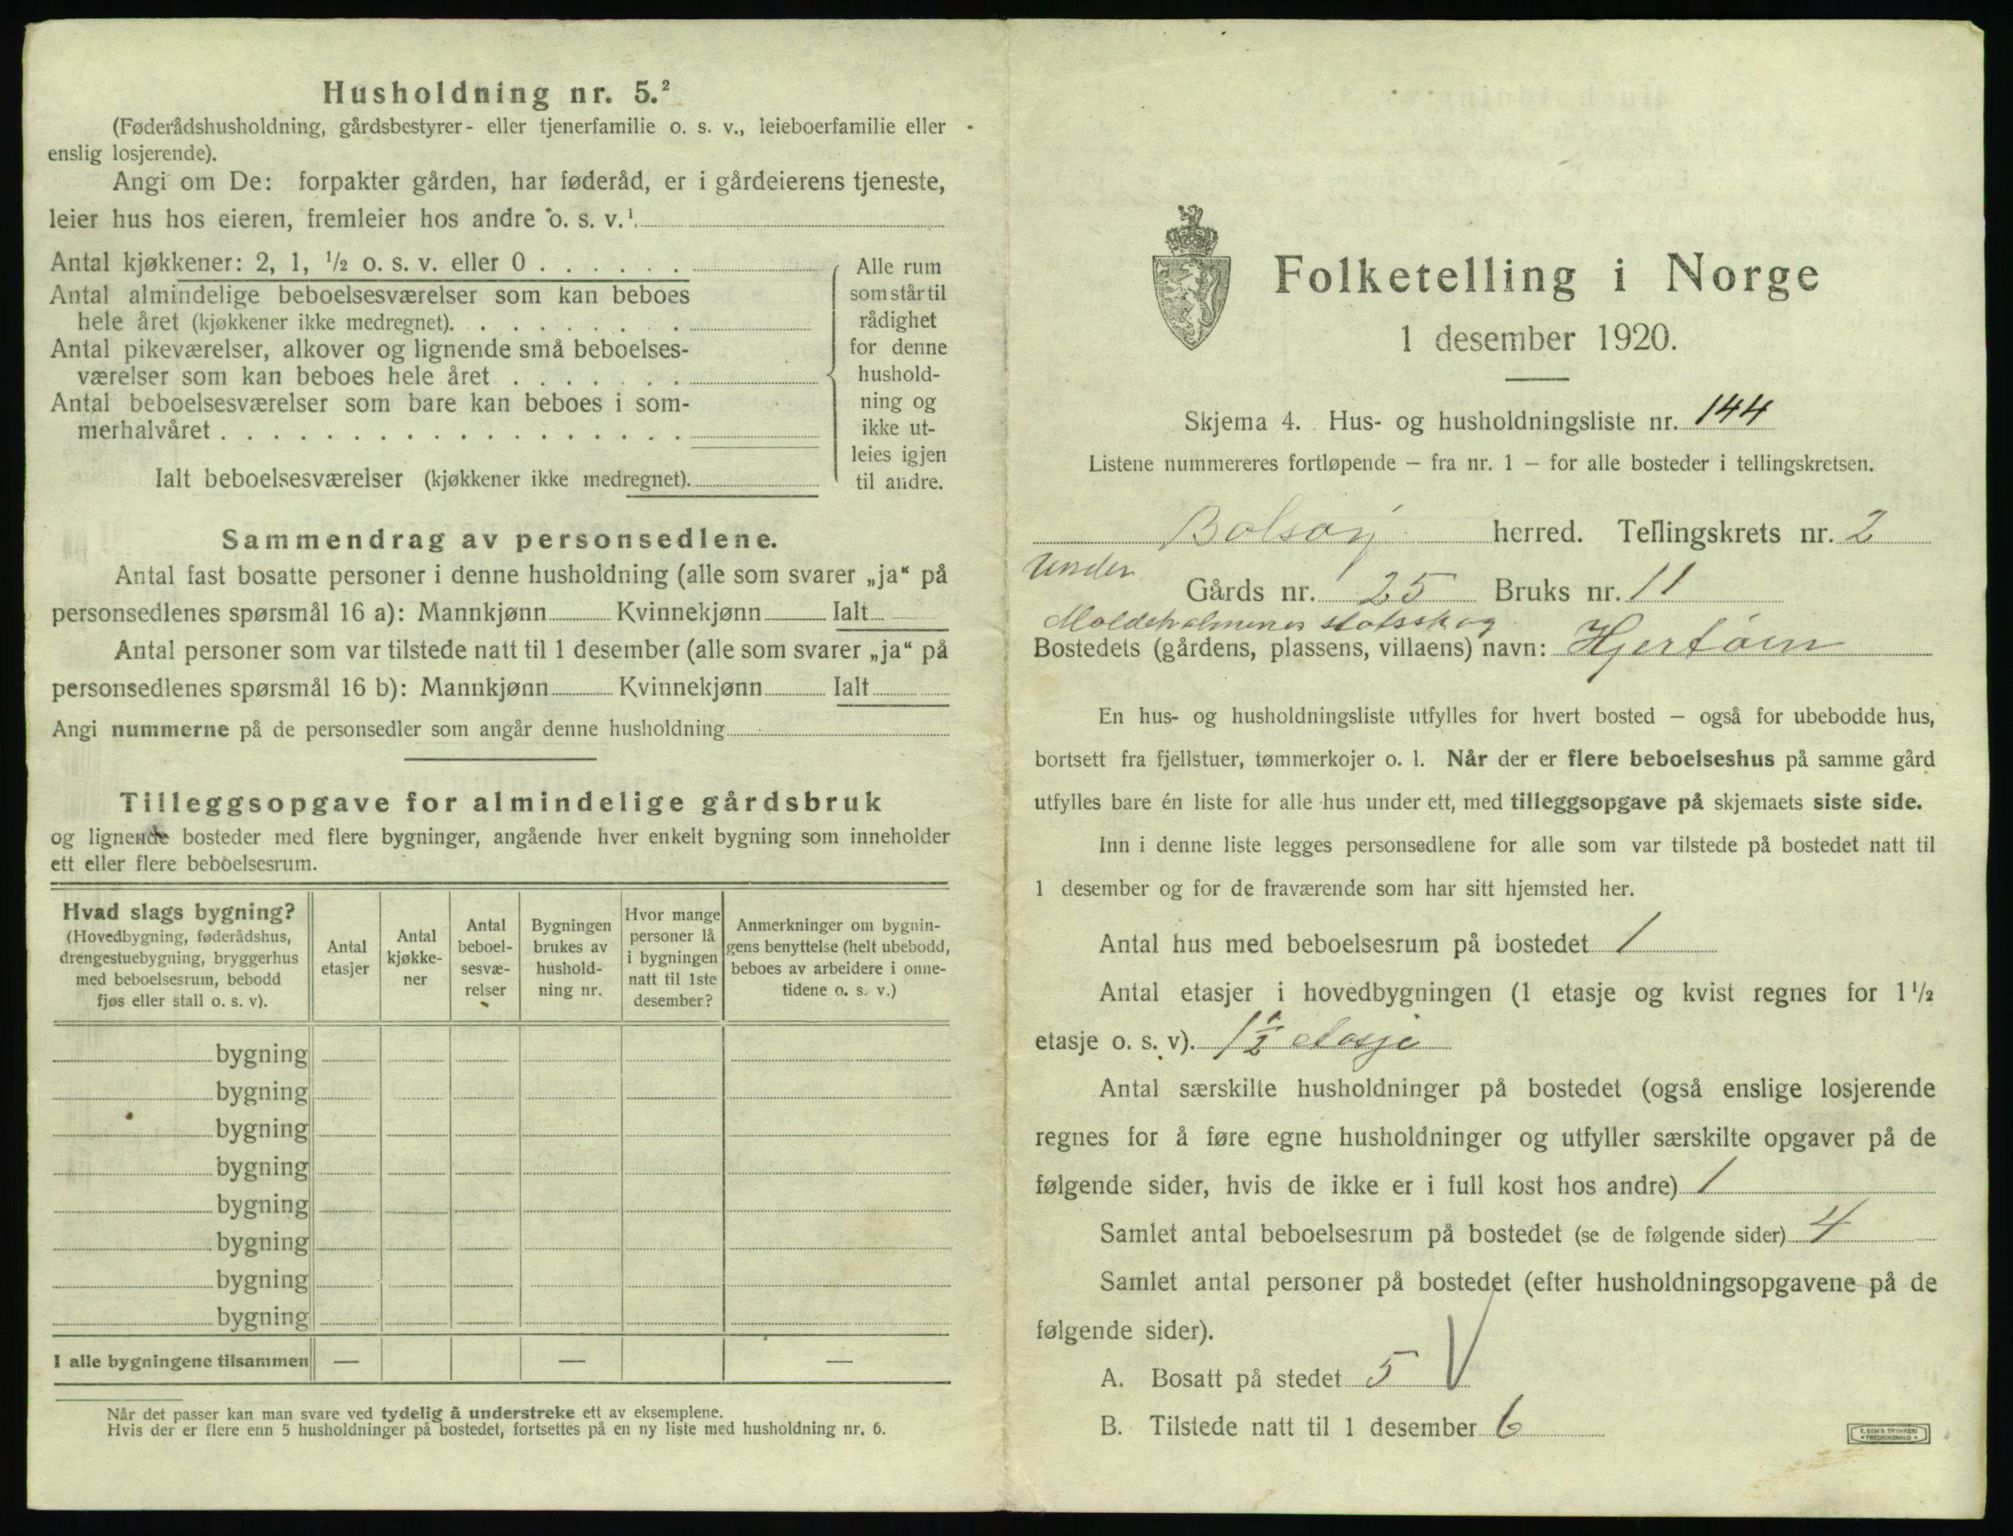 Husholdning nr. 5.²
(Føderådshusholdning, gårdsbestyrer- eller tjenerfamilie o. s. v., leieboerfamilie eller
enslig losjerende).
Angi om De: forpakter gården, har føderåd, er i gårdeierens tjeneste,
leier hus hos eieren, fremleier hos andre o. s. v.¹
Antal kjøkkener: 2, 1, ½ o. s. v. eller 0 . . . . . .
Antal almindelige beboelsesværelser som kan beboes
hele året (kjøkkener ikke medregnet). . . . . . . .
Antal pikeværelser, alkover og lignende små beboelses-
værelser som kan beboes hele året . . . . . . .
Antal beboelsesværelser som bare kan beboes i som-
merhalvåret . . . . . . . . . . . . . . . . . .
Ialt beboelsesværelser (kjøkkener ikke medregnet).
Alle rum
som står til
rådighet
for denne
hushold-
ning og
ikke ut-
leies igjen
til andre.
Sammendrag av personsedlene.
Antal fast bosatte personer i denne husholdning (alle som svarer „ja“ på
personsedlenes spørsmål 16 a): Mannkjønn Kvinnekjønn Ialt
Antal personer som var tilstede natt til 1 desember (alle som svarer „ja“ på
personsedlenes spørsmål 16 b): Mannkjønn Kvinnekjønn Ialt
Angi nummerne på de personsedler som angår denne husholdning
Tilleggsopgave for almindelige gårdsbruk
og lignende bosteder med flere bygninger, angående hver enkelt bygning som inneholder
ett eller flere beboelsesrum.
Hvad slags bygning?
(Hovedbygning, føderådshus,
drengestuebygning, bryggerhus
med beboelsesrum, bebodd
fjøs eller stall o. s. v).
Antal
etasjer
Antal
kjøkke-
ner
Antal
beboel-
sesvæ-
relser
Bygningen
brukes av
hushold-
ning nr.
Hvor mange
personer lå
i bygningen
natt til 1ste
desember?
Anmerkninger om bygnin-
gens benyttelse (helt ubebodd,
beboes av arbeidere i onne-
tidene o. s. v.)
bygning
bygning
bygning
bygning
bygning
bygning
bygning
bygning
I alle bygningene tilsammen — — —
Når det passer kan man svare ved tydelig å understreke ett av eksemplene.
Hvis der er flere enn 5 husholdninger på bostedet, fortsettes på en ny liste med husholdning nr. 6.
Folketelling i Norge
1 desember 1920.
Skjema 4. Hus- og husholdningsliste nr. 144
Listene nummereres fortløpende – fra nr. 1 – for alle bosteder i tellingskretsen.
Bolsøy herred. Tellingskrets nr. 2
under
Gårds nr. 25 Bruks nr. 11
Moldehalmenes statsskog
Bostedets (gårdens, plassens, villaens) navn: Hjertøen
En hus- og husholdningsliste utfylles for hvert bosted – også for ubebodde hus,
bortsett fra fjellstuer, tømmerkojer o. l. Når der er flere beboelseshus på samme gård
utfylles bare én liste for alle hus under ett, med tilleggsopgave på skjemaets siste side.
Inn i denne liste legges personsedlene for alle som var tilstede på bostedet natt til
1 desember og for de fraværende som har sitt hjemsted her.
Antal hus med beboelsesrum på bostedet 1
Antal etasjer i hovedbygningen (1 etasje og kvist regnes for 1½
etasje o. s. v). 1½ etasje
Antal særskilte husholdninger på bostedet (også enslige losjerende
regnes for å føre egne husholdninger og utfyller særskilte opgaver på de
følgende sider, hvis de ikke er i full kost hos andre) 1
Samlet antal beboelsesrum på bostedet (se de følgende sider) 4
Samlet antal personer på bostedet (efter husholdningsopgavene på de
følgende sider).
A. Bosatt på stedet 5 V
B. Tilstede natt til 1 desember 6